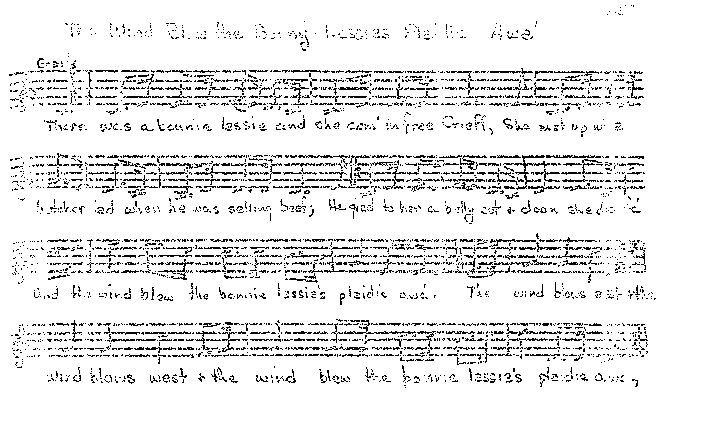 The Wind Blew the Bonny Lassies Plaidie Awa'
There was a bonnie lassie and she cam' in frae Crieff, She met up wi' a
butcher lad when he was selling beef; He gied to her a belly cut + doon she
And the wind blew the bonnie lassie's plaidie awa'. The wind blows east + the
wind blows west + the wind blew the bonnie lassie's plaidie awa',